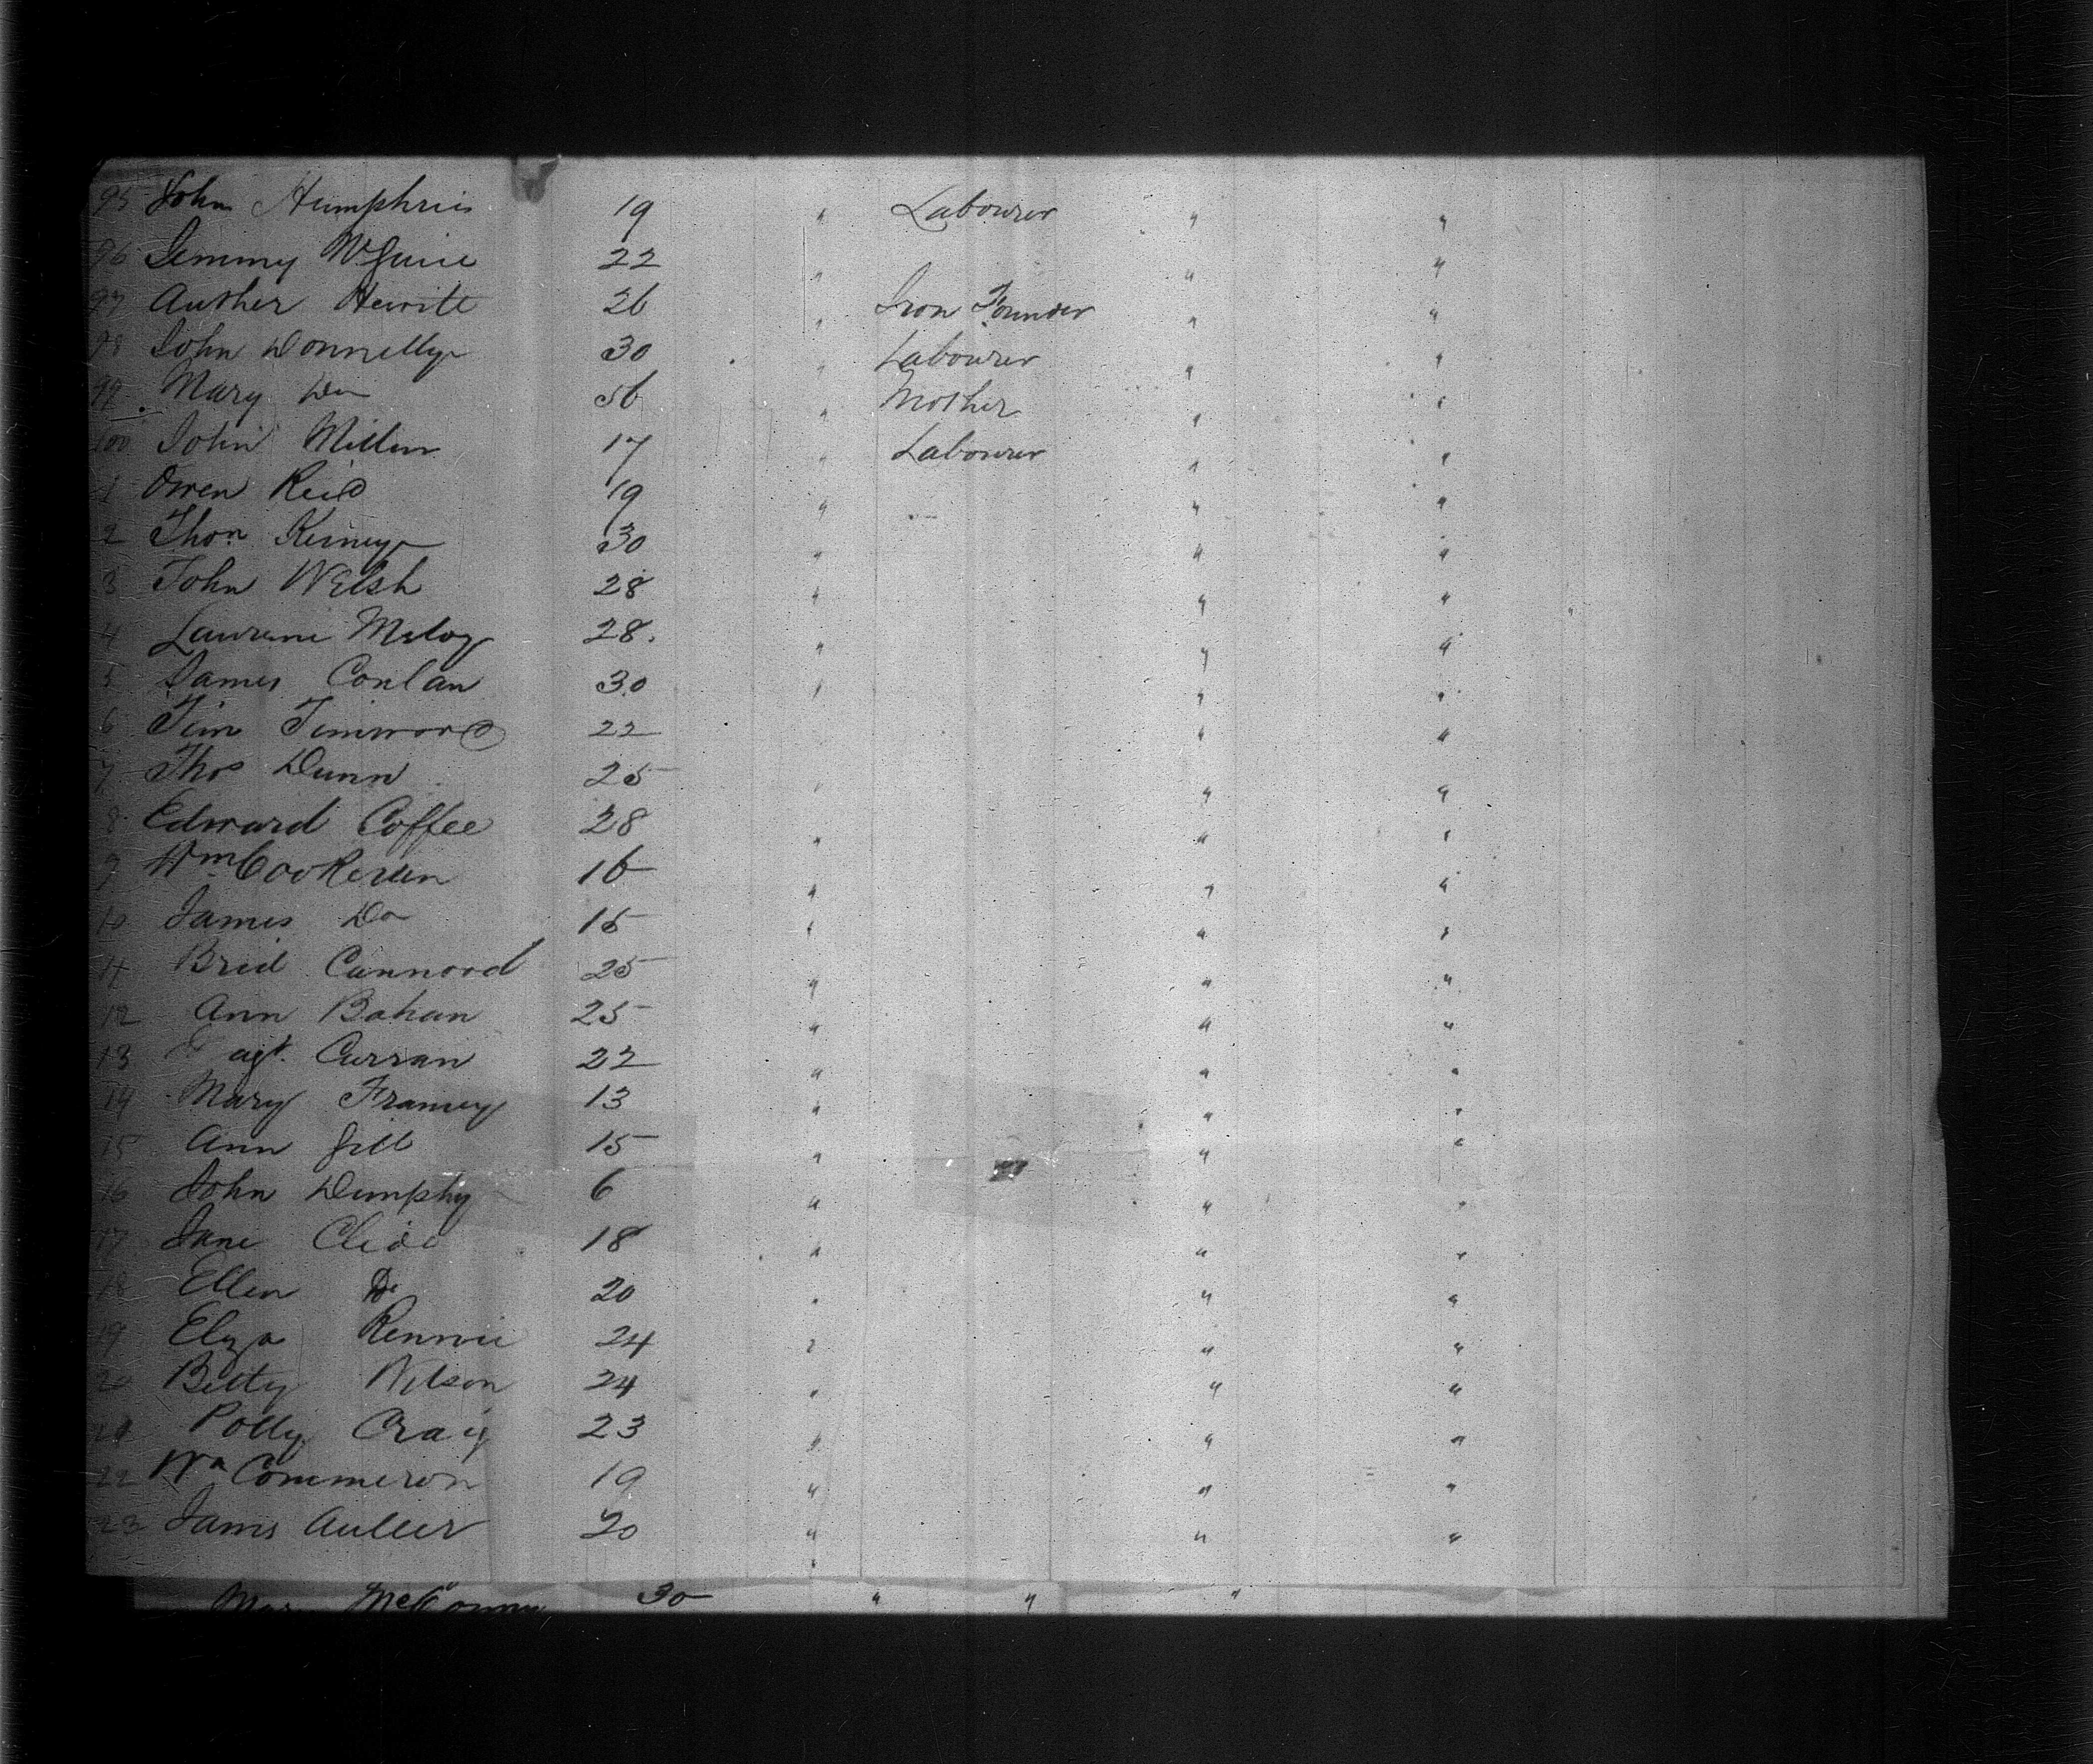 95 John Humphris 19 " Labourer " "
96 Jemmy McGuire 22 " " "
97 Auther Hewitt 26 " Iron Founder " "
98 John Donnelly 30 " Labourer " "
99 Mary Do 56 " Mother " "
100 John Millen 17 " Labourer " "
1 Owen Reid 19 " " "
2 Thos Kerney 30 " " "
3 John Welsh 28 " " "
4 Meloy 28. " " "
5 James Conlan 30 " " "
6 Tim 22 " "
7 Thos Dunn 25 " " "
8 Edward Coffee 28 " " "
9 Wm 16 " " "
10 James Do 15 " " "
11 Brid Cannood 25 " " "
12 Ann Bohan 25 " " "
13 agt. Curran 22 " " "
14 Mary Framey 13 " " "
15 Ann Gill 15 " " "
16 John Dumphy 6 " " "
17 Jane 18 " " "
18 Ellen Do 20 " " "
19 Elza Rennie 24 " " "
20 Betty Nelson 24 " " "
21 Polly Craig 23 " " "
22 Wm Commeron 19 " " "
23 James 20 " " "
30 " " "